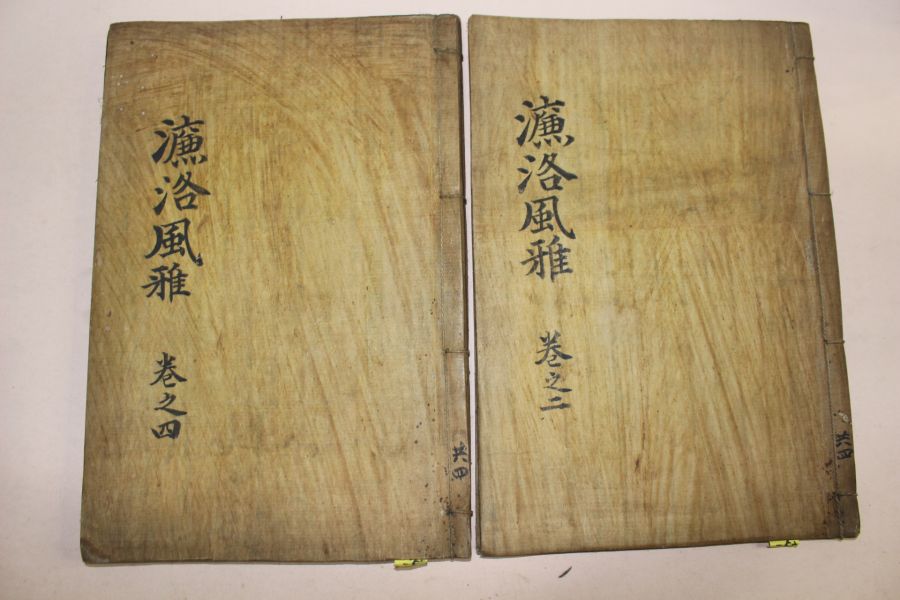 濂洛風雅
卷之四
共四
濂洛風雅
卷之二
共四